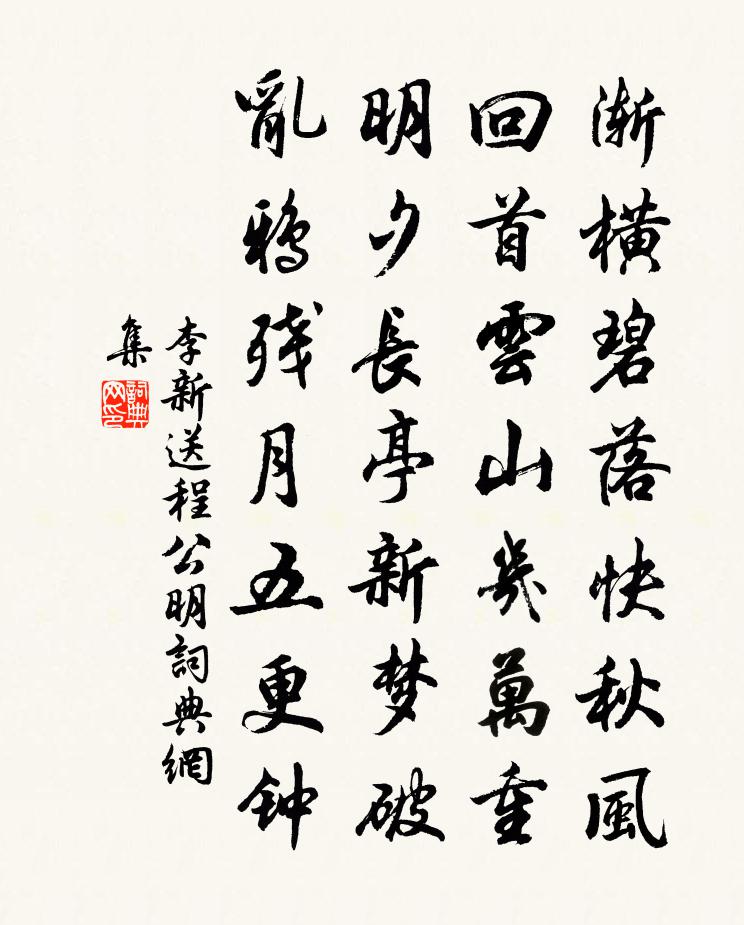 渐横碧落快秋風
回首雲山幾萬重
明夕長亭新梦破
亂鴉残月五更钟
李新送程公明詞典網
集
詞典
网印